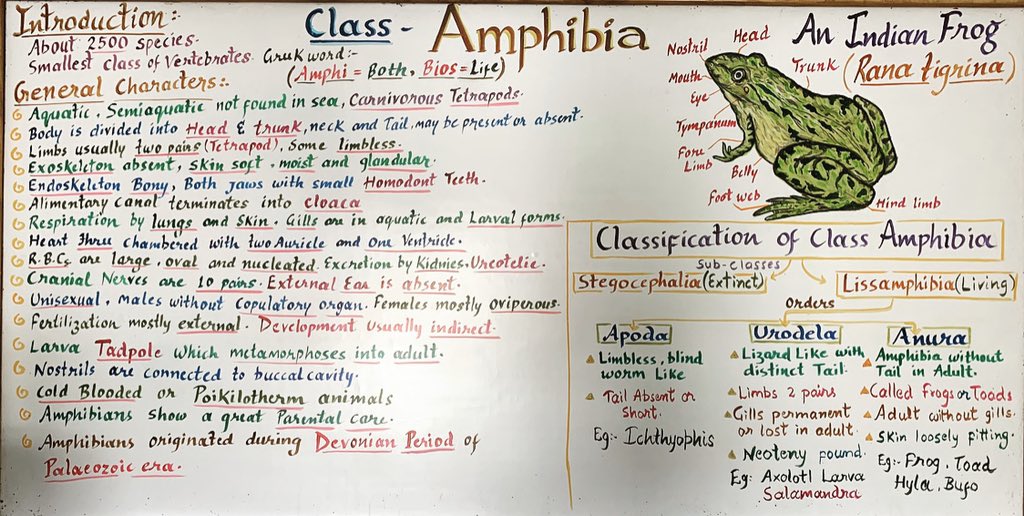 Introduction:-
About 2500 species.
Smallest class of Vertebrates.
Class - Amphibia
Gruk word:-
(Amphi = Both, Bios = Life)
General Characters:-
Aquatic, Semiaquatic not found in sea, Carnivorous Tetrapods.
Body is divided into Head & trunk, neck and Tail may be present or absent.
Limbs usually two pairs (Tetrapod), Some limbless.
Exoskeleton absent, skin soft, moist and glandular.
Endoskeleton Bony, Both jaws with small Homodont Teeth.
Alimentary Canal terminates into cloaca
Respiration by lungs and skin. Gills are in aquatic and Larval forms.
Heart three chambered with two Auricle and One Ventricle.
R.B.Cs are large, oval and nucleated. Excretion by Kidnies. Ureotelic.
Cranial Nerves are 10 pairs. External Ear is absent.
Unisexual, males without Copulatory organ. Females mostly oviperous.
Fertilization mostly external. Development Usually indirect.
Larva Tadpole which metamorphoses into adult.
Nostrils are connected to buccal cavity.
Cold Blooded or Poikilotherm animals
Amphibians show a great Parental care.
Amphibians originated during Devonian Period of
Palaeozoic era.
An Indian Frog
(Rana tigrina)
Head
Nostril
Trunk
Mouth
Eye
Tympanum
Fore
Limb
Belly
Foot web
Hind limb
Classification of Class Amphibia
Sub-classes
Stegocephalia (Extinct)
Lissamphibia (Living)
Orders
Apoda
Limbless, blind
worm Like
Tail Absent or
Short.
Eg:- Ichthyophis
Urodela
Lizard Like with
distinct Tail.
Limbs 2 pairs
Gills permanent
or lost in adult.
Neoteny found.
Eg: Axolotl Larva
Salamandra
Anura
Amphibia without
Tail in Adult.
Called Frogs or Toods
Adult without gills.
Skin loosely fitting.
Eg:- Frog, Toad
Hyla, Bufo